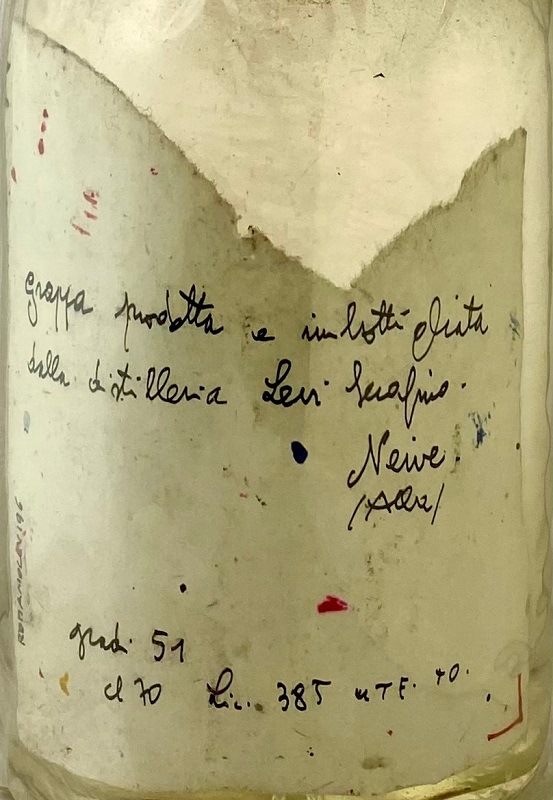 grappa prodotta e imbottigliata
dalla distilleria Levi Serafino.
Neive.
(Alba)
gradi 51
cl 70 Lic. 385 UTF. 40.